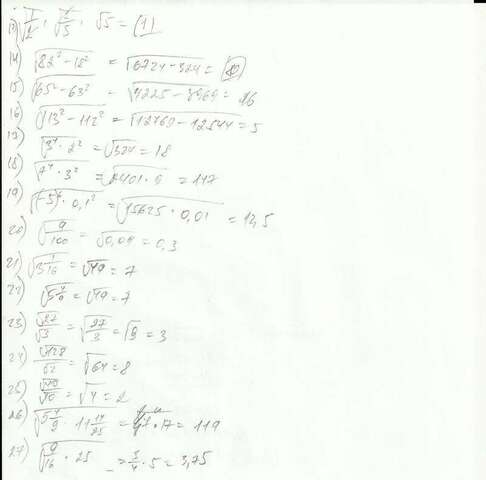 14) √82² - 18² = √6724 - 324 = 80
15) √65² - 63² = √4225 - 3969 = 16
16) √113² - 112² = √12769 - 12544 = 5
√3⁴ · 2² = √324 = 18
18) √7⁴ · 3² = √2401 · 9 = 147
19) √(-5)⁶ · 0,1² = √15625 · 0,01 = 12,5
20) √9/100 = √0,09 = 0,3
21) √3 1/16 = √49 = 7
22) √5 4/9 = √49 = 7
23) √27/√3 = √27/3 = √9 = 3
24) √128/√2 = √64 = 8
25) √40/√10 = √4 = 2
26) √5 4/9 · 11 14/25 = · 17 = 119
27) √9/16 · 25 = 3/4 · 5 = 3,75